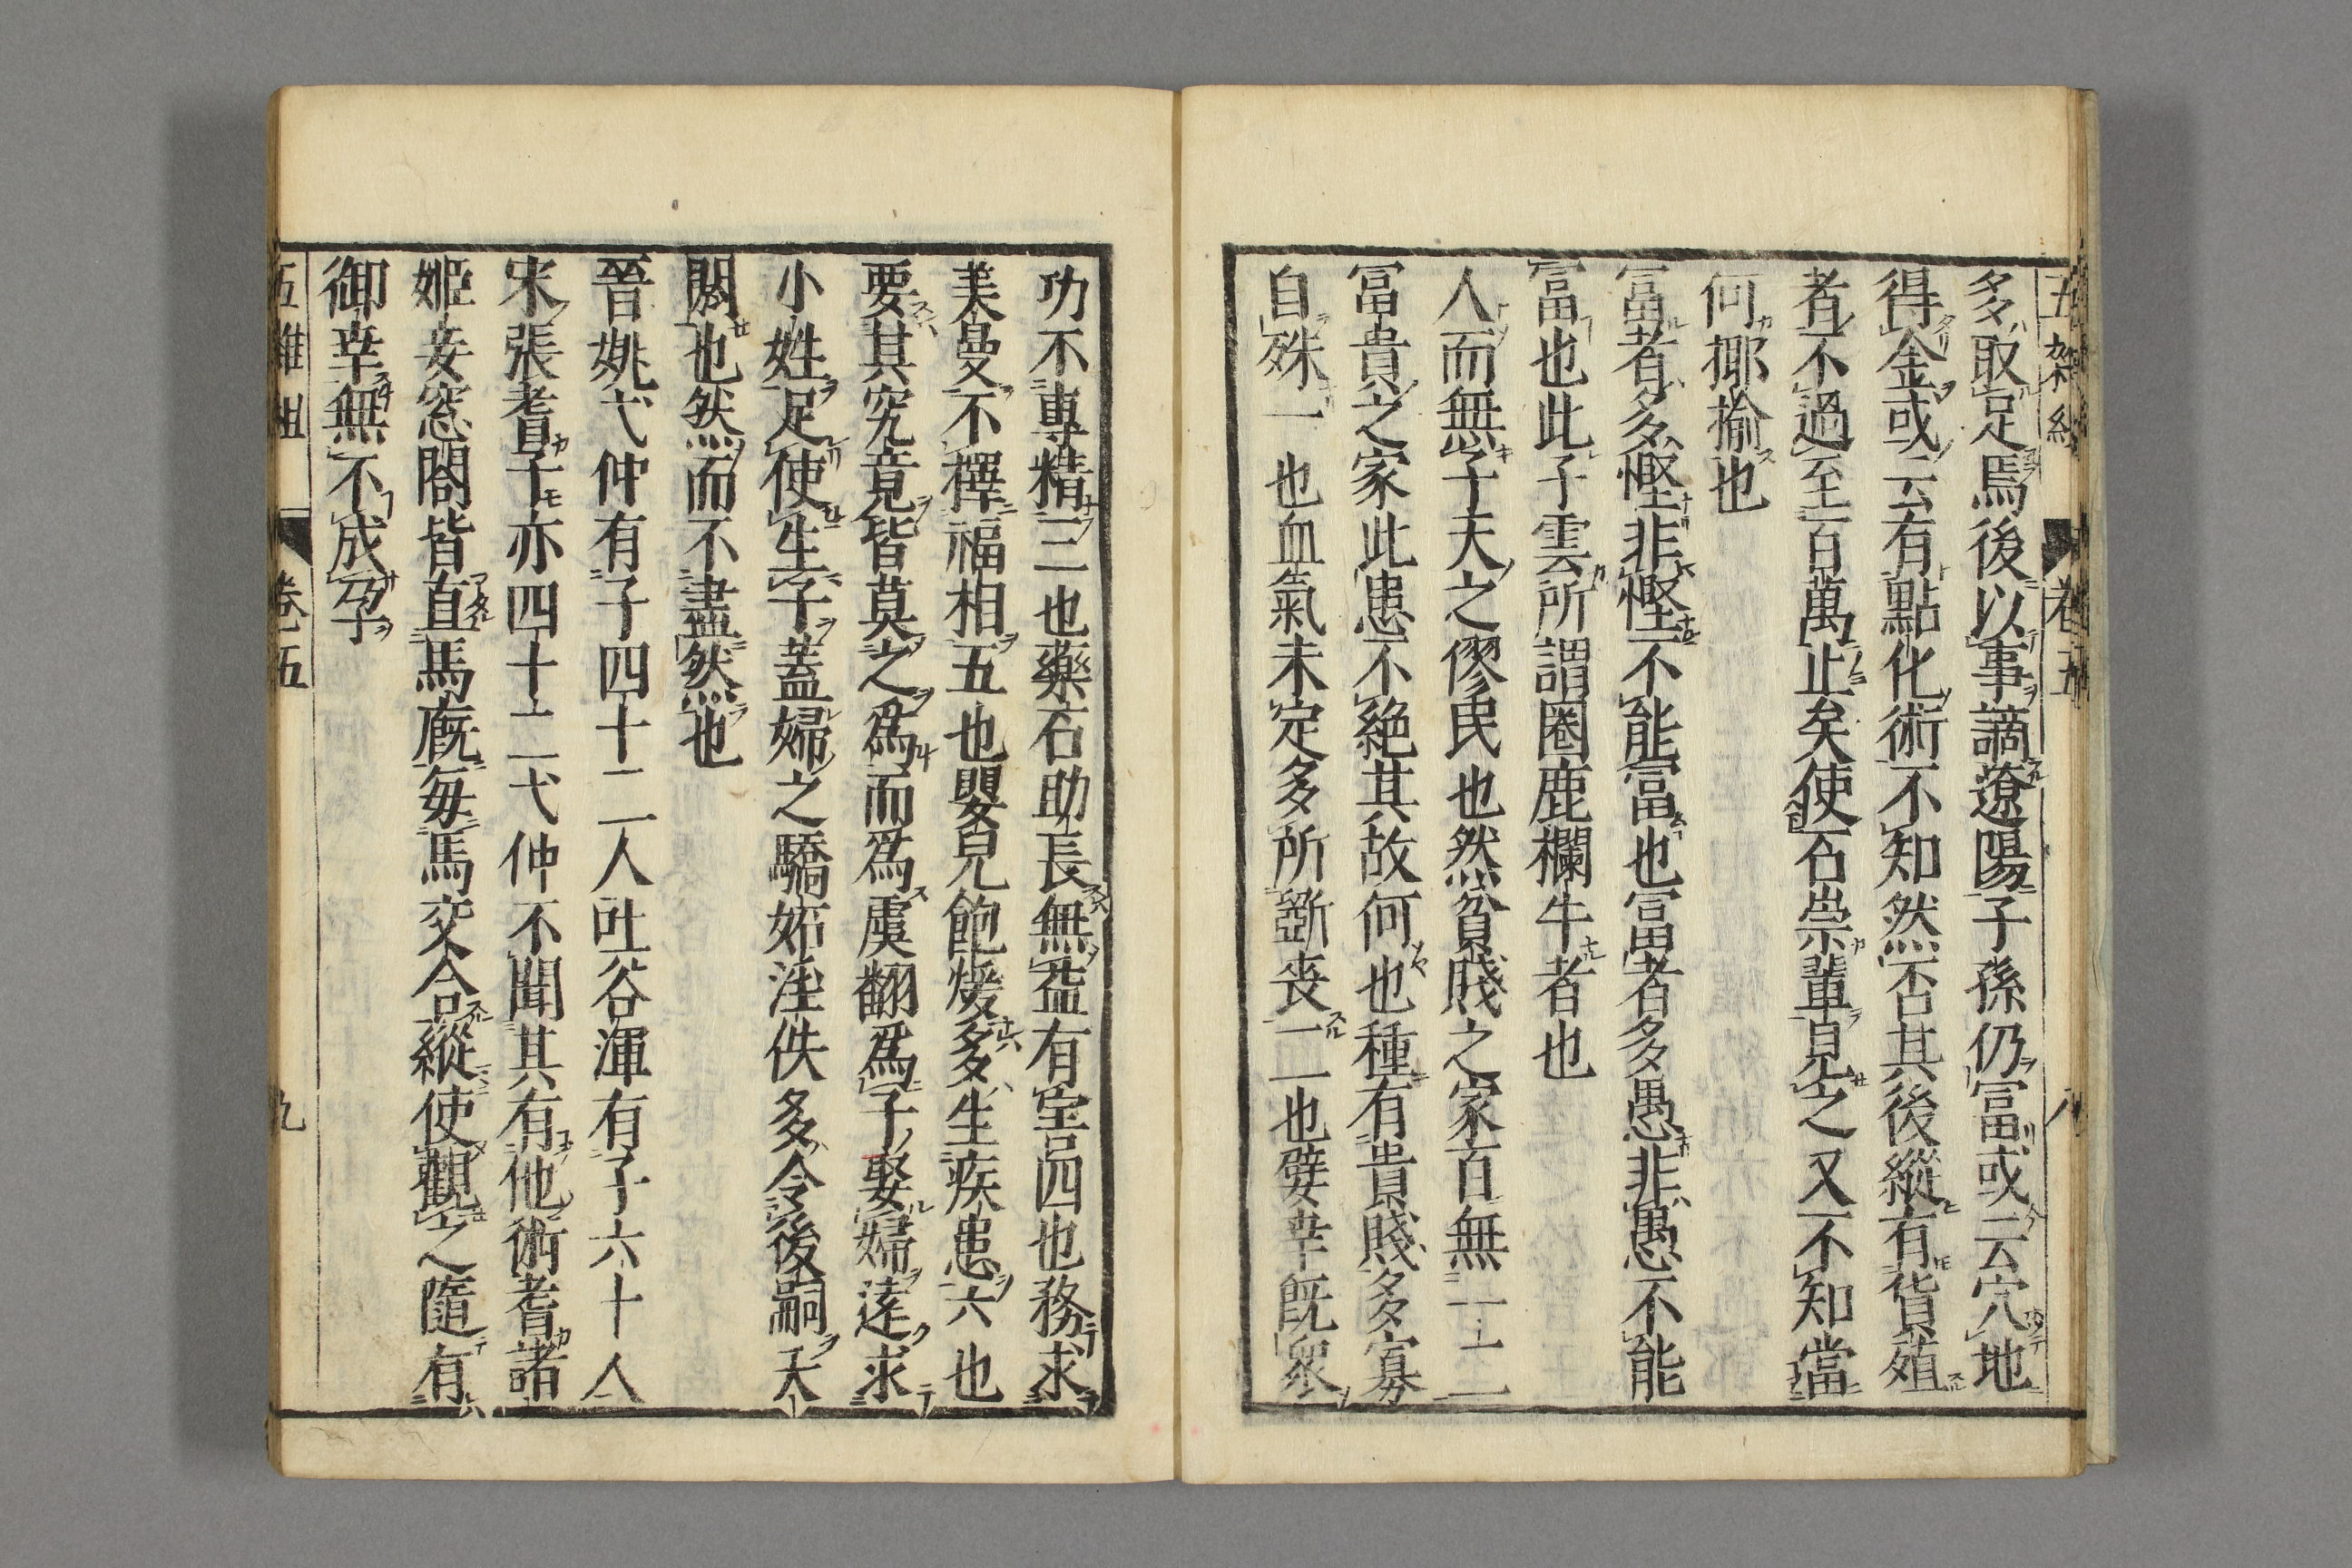 五雜組 卷五 八
多取足焉後以事謫遼陽子孫仍冨或云穴地
得金或云有點化術不知然否其後縱有貨殖
者不過至百萬止矣使石崇輩見之又不知當
何揶揄也
冨者多慳非慳不能冨也冨者多愚非愚不能
冨也此子雲所謂圈鹿欄牛者也
人而無子天之僇民也然貧賤之家百無一二
冨貴之家此患不絕其故何也種有貴賤多寡
自殊一也血氣未定多所斵喪二也嬖幸旣衆
功不專精三也藥石助長無益有害四也務求
美曼不擇福相五也嬰兒飽煖多生疾患六也
要其究竟皆莫之爲而爲虞翻爲子娶婦遠求
小姓足使生子蓋婦之驕妬淫佚多令後嗣夭
閼也然而不盡然也
晉姚弋仲有子四十二人吐谷渾有子六十人
宋張耆子亦四十二弋仲不聞其有他術耆諸
姬妾窓閤皆直馬廐每馬交合縱使觀之隨有
御幸無不成孕
五雜組 卷五 九